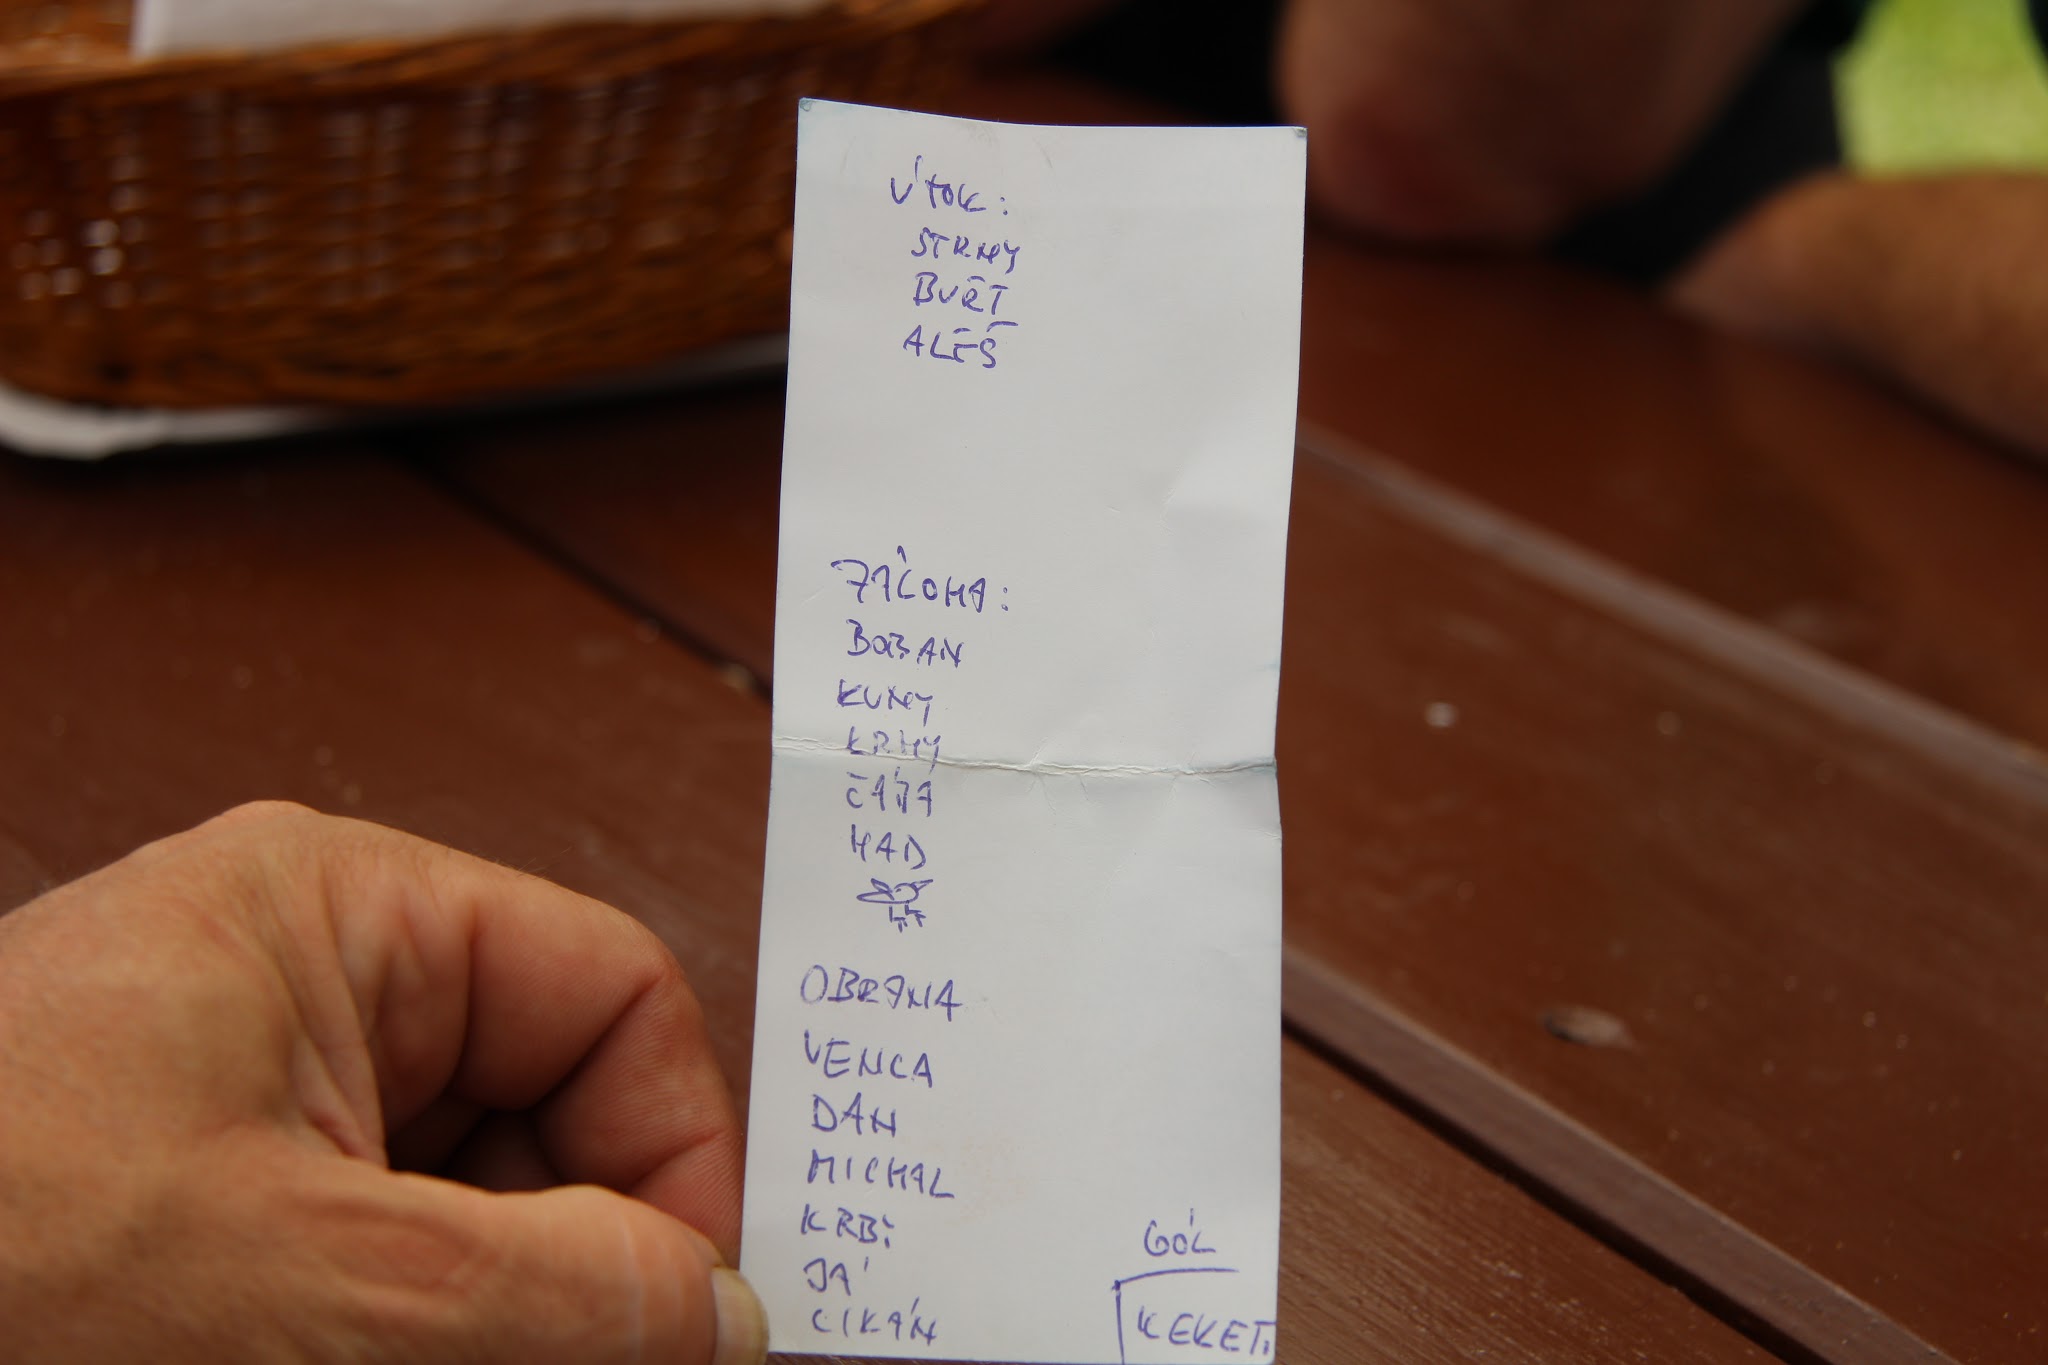 ÚTOK:
STRNY
BUŘT
ALEŠ
ZÁLOHA:
BOBAN
KUNY
KRNY
ČÁJA
HAD
OBRANA
VENCA
DAN
MICHAL
KRBI
JÁ
CIKÁN
GÓL
KEKETI